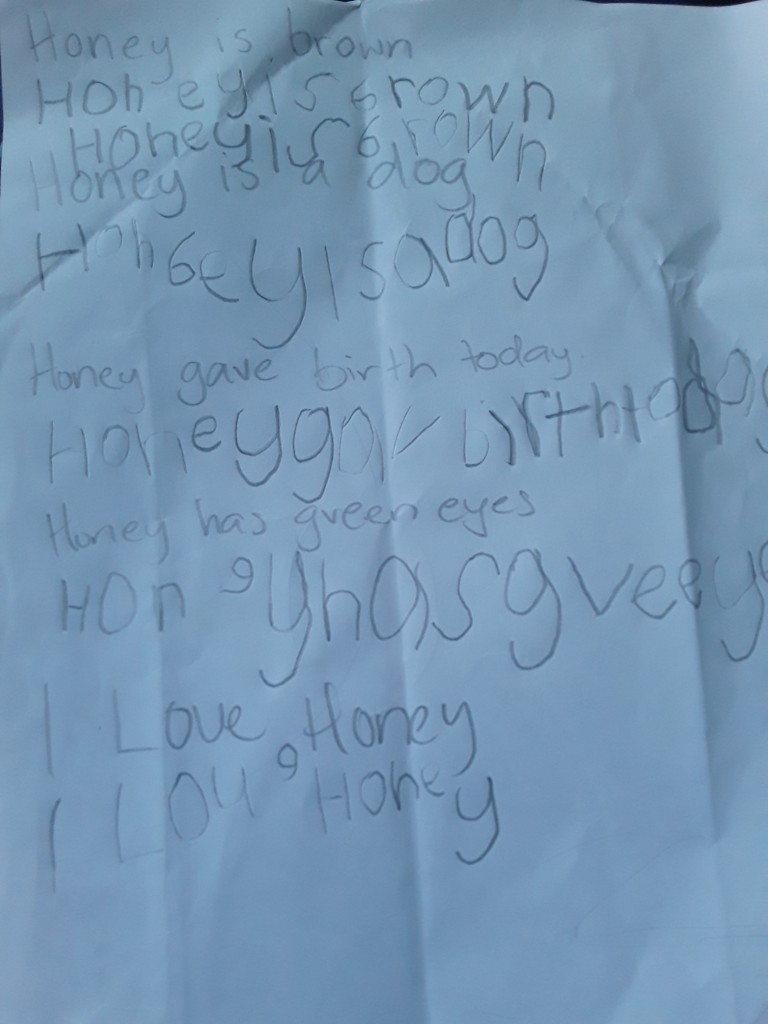 Honey is brown
Honeyisbrown
Honeyisbrown
Honey is a dog
Hon6eyisadog
Honey gave birth today.
Honeygav birthtoday
Honey has green eyes
Honeyhasgveey
I Love Honey
I Loue Honey